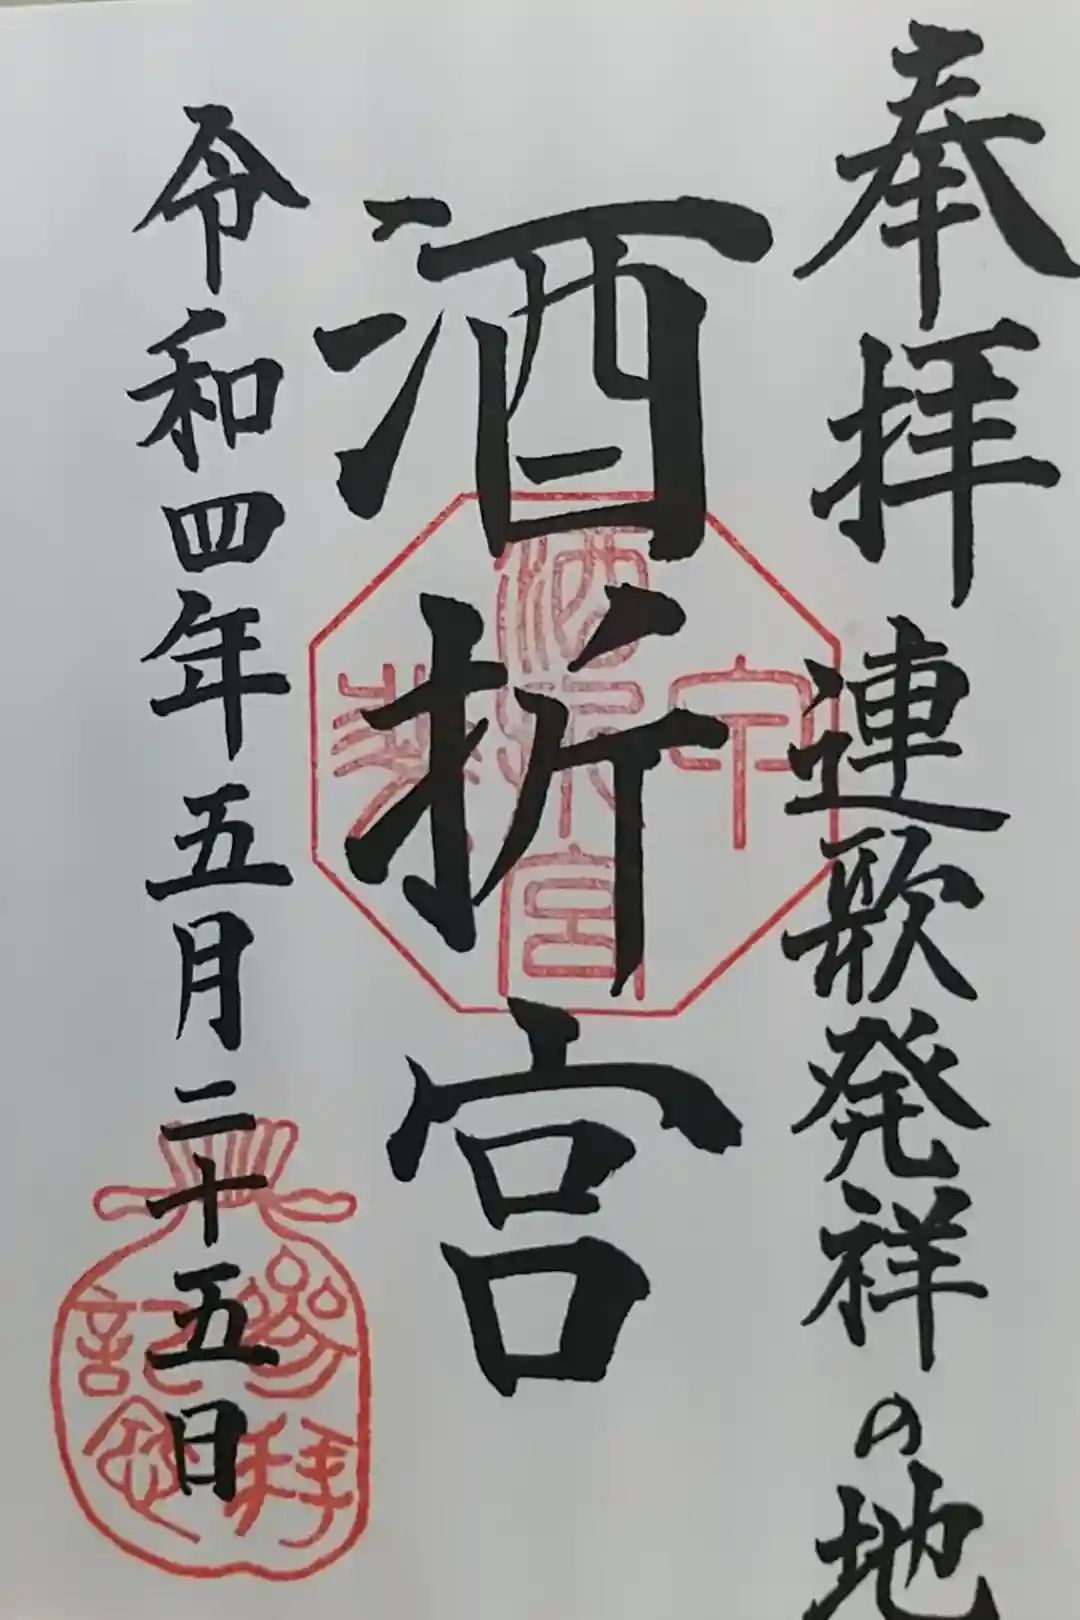 奉拝 連歌発祥の地
酒折宮
令和四年五月二十五日
酒折宮
参拝
記念